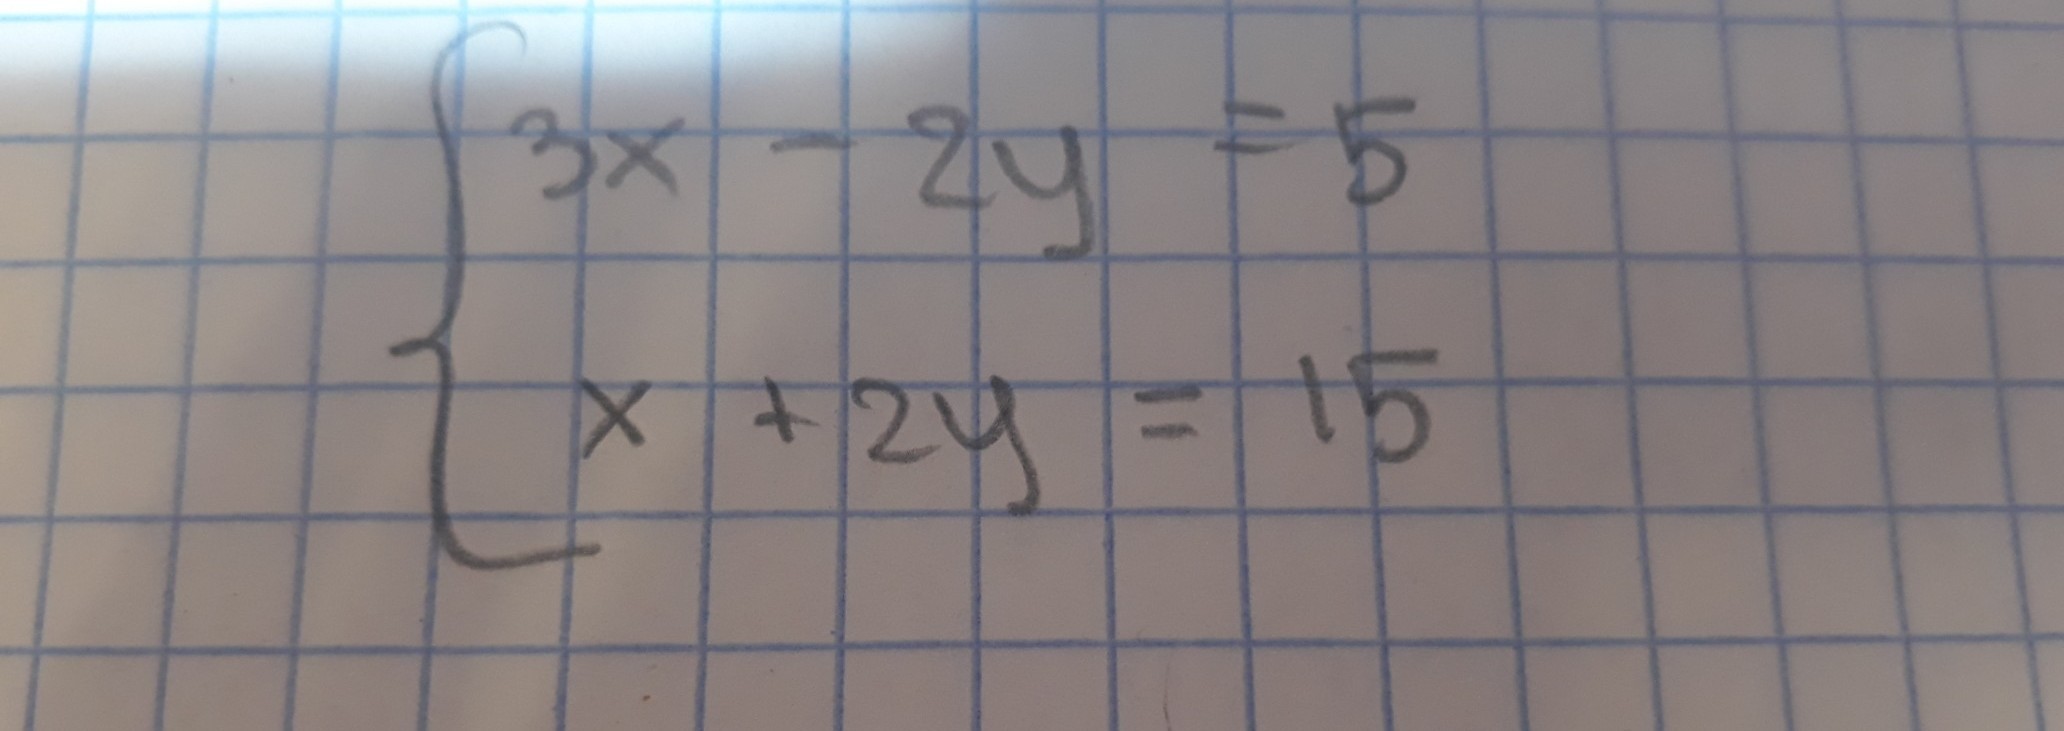 3x - 2y = 5
x + 2y = 15